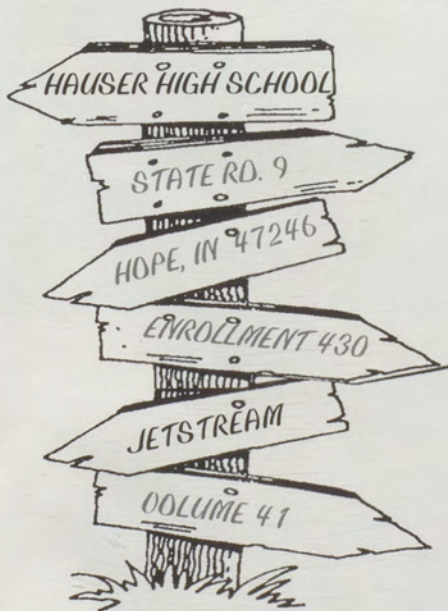 HAUSER HIGH SCHOOL
STATE RD. 9
HOPE, IN 47246
ENROLLMENT 430
JETSTREAM
VOLUME 41